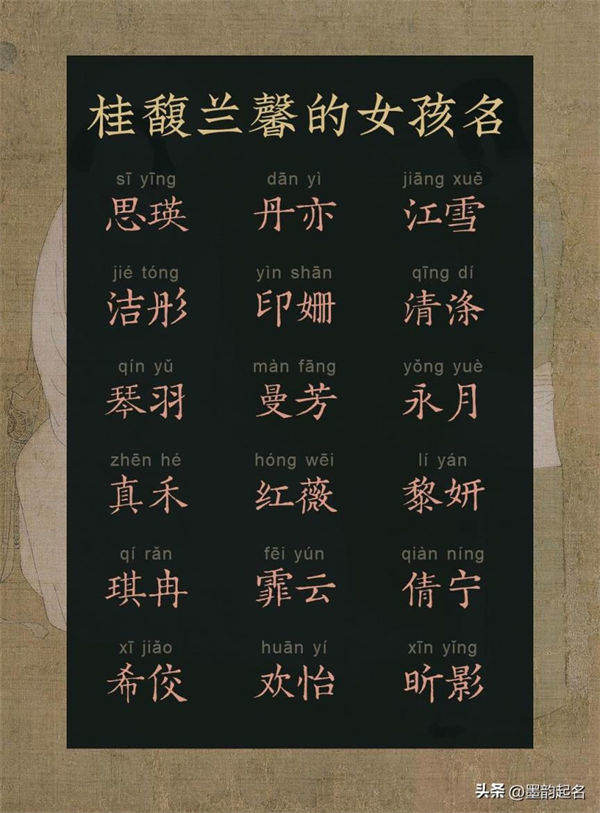 桂馥兰馨的女孩名
sī yīng dān yì jiāng xuě
思瑛 丹亦 江雪
jié tóng yìn shān qīng dí
洁彤 印姗 清涤
qín yǔ màn fāng yǒng yuè
琴羽 曼芳 永月
zhēn hé hóng wēi lí yán
真禾 红薇 黎妍
qí rǎn fēi yún qiàn níng
琪冉 霏云 倩宁
xī jiǎo huān yí xīn yǐng
希佼 欢怡 昕影
头条 @墨韵起名